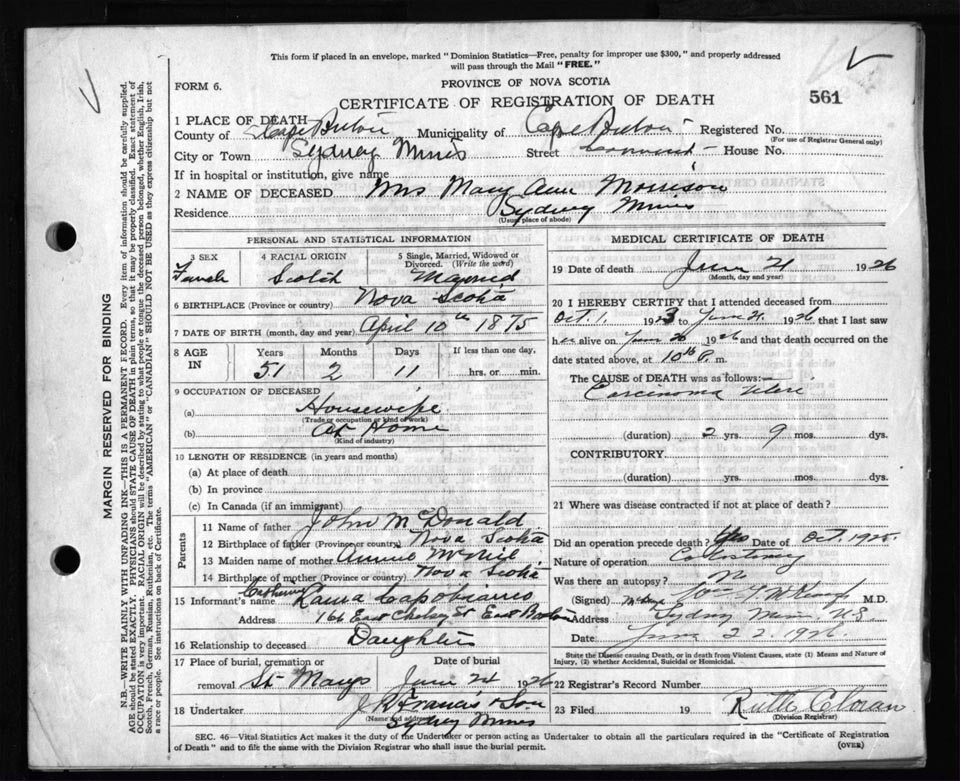 This form if placed in an envelope, marked "Dominion Statistics—Free, penalty for improper use $300," and properly addressed
will pass through the Mail "FREE."
FORM 6.
PROVINCE OF NOVA SCOTIA
CERTIFICATE OF REGISTRATION OF DEATH
561
1 PLACE OF DEATH
County of Cape Breton Municipality of Cape Breton Registered No.
(For use of Registrar General only)
City or Town Sydney Mines Street House No.
If in hospital or institution, give name
2 NAME OF DECEASED Mrs Mary Ann Morrison
Residence Sydney Mines
(Usual place of abode)
PERSONAL AND STATISTICAL INFORMATION
3 SEX 4 RACIAL ORIGIN 5 Single, Married, Widowed or
Divorced. (Write the word)
Female Scotch Married
6 BIRTHPLACE (Province or country) Nova Scotia
7 DATE OF BIRTH (month, day and year) April 10th 1875
8 AGE IN Years Months Days If less than one day,
51 2 11 hrs. or min.
9 OCCUPATION OF DECEASED
(a) Housewife
(Trade or occupation or kind of work)
(b) At Home
(Kind of industry)
10 LENGTH OF RESIDENCE (in years and months)
(a) At place of death
(b) In province
(c) In Canada (if an immigrant)
Parents
11 Name of father John McDonald
12 Birthplace of father (Province or country) Nova Scotia
13 Maiden name of mother Annie McNeil
14 Birthplace of mother (Province or country) Nova Scotia
Catherine
15 Informant's name Laura Capobianco
Address 166 East Chelsea St East Boston
16 Relationship to deceased Daughter
17 Place of burial, cremation or Date of burial
removal St Marys June 24 1926
18 Undertaker J R Francis & Son
(Name and address)
Sydney Mines
MEDICAL CERTIFICATE OF DEATH
19 Date of death June 21 1926
(Month, day and year)
20 I HEREBY CERTIFY that I attended deceased from
Oct. 1. 1923 to June 21, 1926 that I last saw
her alive on June 20 1926 and that death occurred on the
date stated above, at 10 P. m.
The CAUSE of DEATH was as follows:—
Carcinoma Uteri
(duration) 2 yrs. 9 mos. dys.
CONTRIBUTORY
(duration) yrs. mos. dys.
21 Where was disease contracted if not at place of death?
Did an operation precede death? Yes Date of Oct. 1925.
Nature of operation
Was there an autopsy? No
(Signed) M.D.
Address Sydney Mines, N.S.
Date June 22. 1926.
State the Disease causing Death, or in death from Violent Causes, state (1) Means and Nature of
Injury, (2) whether Accidental, Suicidal or Homicidal.
22 Registrar's Record Number
23 Filed 19 Ruth Cloran
(Division Registrar)
SEC. 46—Vital Statistics Act makes it the duty of the Undertaker or person acting as Undertaker to obtain all the particulars required in the "Certificate of Registration
of Death" and to file the same with the Division Registrar who shall issue the burial permit.
(OVER)
MARGIN RESERVED FOR BINDING
N.B.—WRITE PLAINLY WITH UNFADING INK—THIS IS A PERMANENT RECORD. Every item of information should be carefully supplied.
AGE should be stated EXACTLY. PHYSICIANS should STATE CAUSE OF DEATH in plain terms, so that it may be properly classified. Exact statement of
OCCUPATION is very important. RACIAL ORIGIN will be described by stating to what people or tongue the deceased person belonged, whether English, Irish,
Scotch, French, German, Russian, Ruthenian, etc. The terms "AMERICAN" or "CANADIAN" SHOULD NOT BE USED as they express citizenship but not
a race or people. See instructions on back of Certificate.